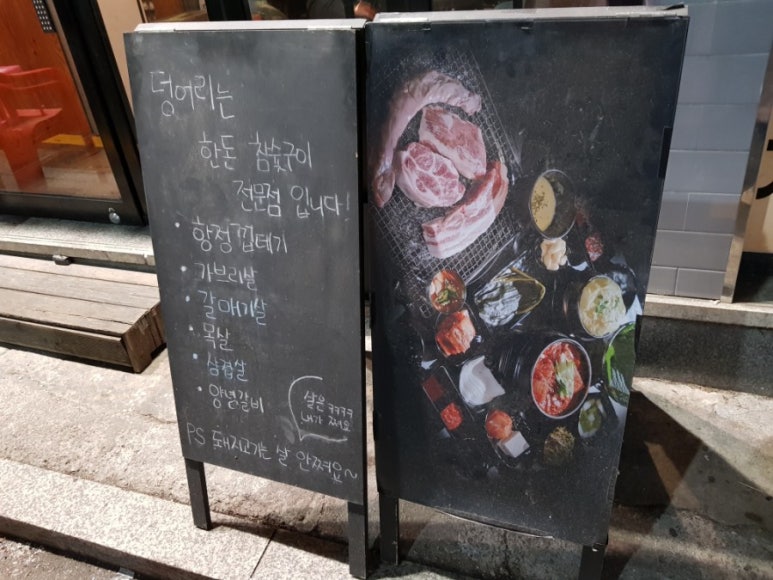 덩어리는
한돈 참숯구이
전문점 입니다!
· 항정껍데기
· 가브리살
· 갈매기살
· 목살
· 삼겹살
· 양념갈비
살은 ㅋㅋㅋㅋ
내가 쪄요
PS 돼지고기는 살 안쪄요~